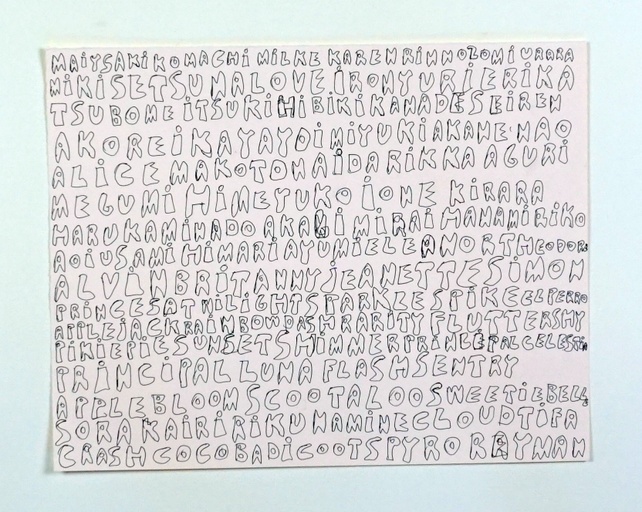 MAIYSAKIKOMACHIMILKEKARENRINNOZOMIURARA
MIKISETSUNALOVEIRONYURIERIKA
TSUBOMEITSUKIHIBIKIKANADESEIREN
AKOREIKAYAYOIMIYUKIAKANENAO
ALICEMAKOTONAIDARIKKAAGURI
MEGUMIHIMEYUKOIONEKIRARA
HARUKAMINADOAKAGIMIRAIMANAMIRIKO
AOIUSAMIHIMARIAYUMIELEANORTHEODORE
ALVINBRITANNYJEANETTESIMON
PRINCESATWILIGHTSPARKLESPIKEELPERRO
APPLEJACKRAINBOWDASHRARITYFLUTTERSHY
PIKIEPIESUNSETSHIMMERPRINCEPALCELESTIA
PRINCIPALLUNAFLASHSENTRY
APPLEBLOOMSCOOTALOOSWEETIEBELLE
SORAKAIRIRIKUNAMINECLOUDTIFA
CRASHCOCOBADICOOTSPYRORAYMAN